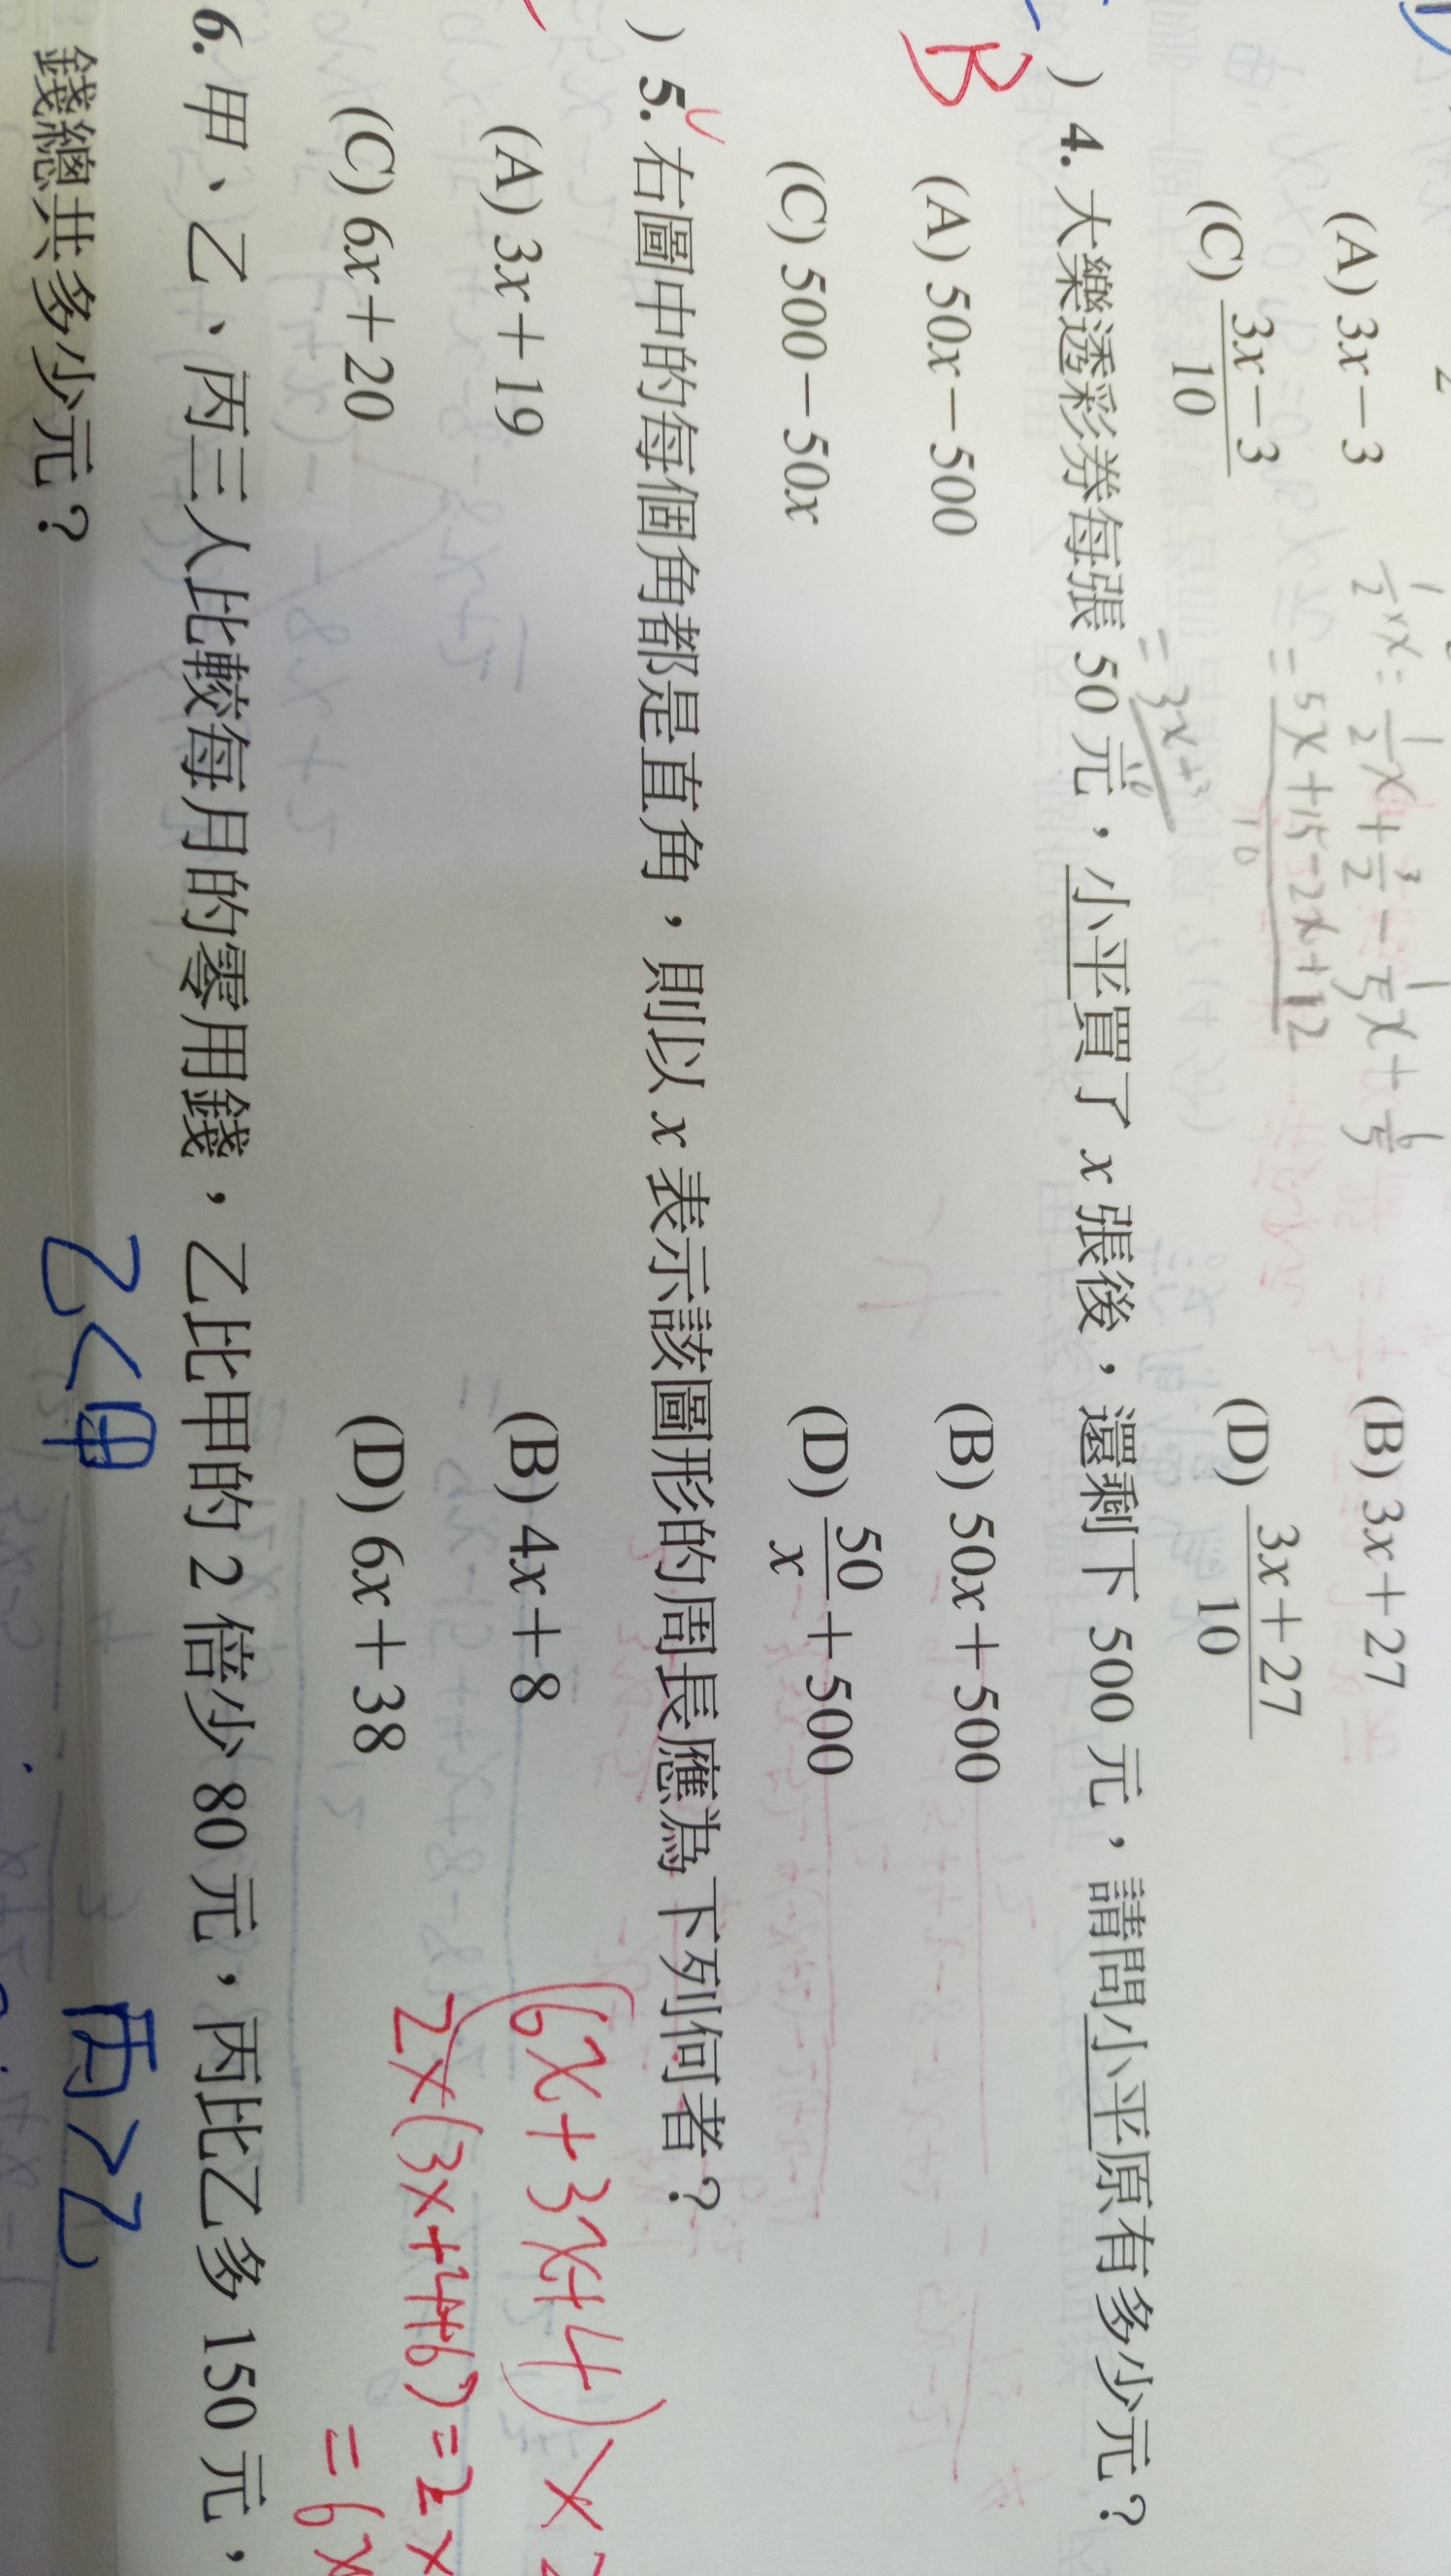 (A) 3x－3 (B) 3x＋27
(C) \frac{3x－3}{10} (D) \frac{3x＋27}{10}
= \frac{5x+15-2x+12}{10}
= \frac{3x+3}{10}
B ) 4. 大樂透彩券每張 50 元，小平買了 x 張後，還剩下 500 元，請問小平原有多少元？
(A) 50x－500 (B) 50x＋500
(C) 500－50x (D) \frac{50}{x}＋500
) 5. 右圖中的每個角都是直角，則以 x 表示該圖形的周長應為下列何者？
(A) 3x＋19 (B) 4x＋8
(C) 6x＋20 (D) 6x＋38
(6x+3x+4)×2
2×(3x+4+6)=2×
=6x
6. 甲、乙、丙三人比較每月的零用錢，乙比甲的 2 倍少 80 元，丙比乙多 150 元，
錢總共多少元？
乙<甲 丙>乙